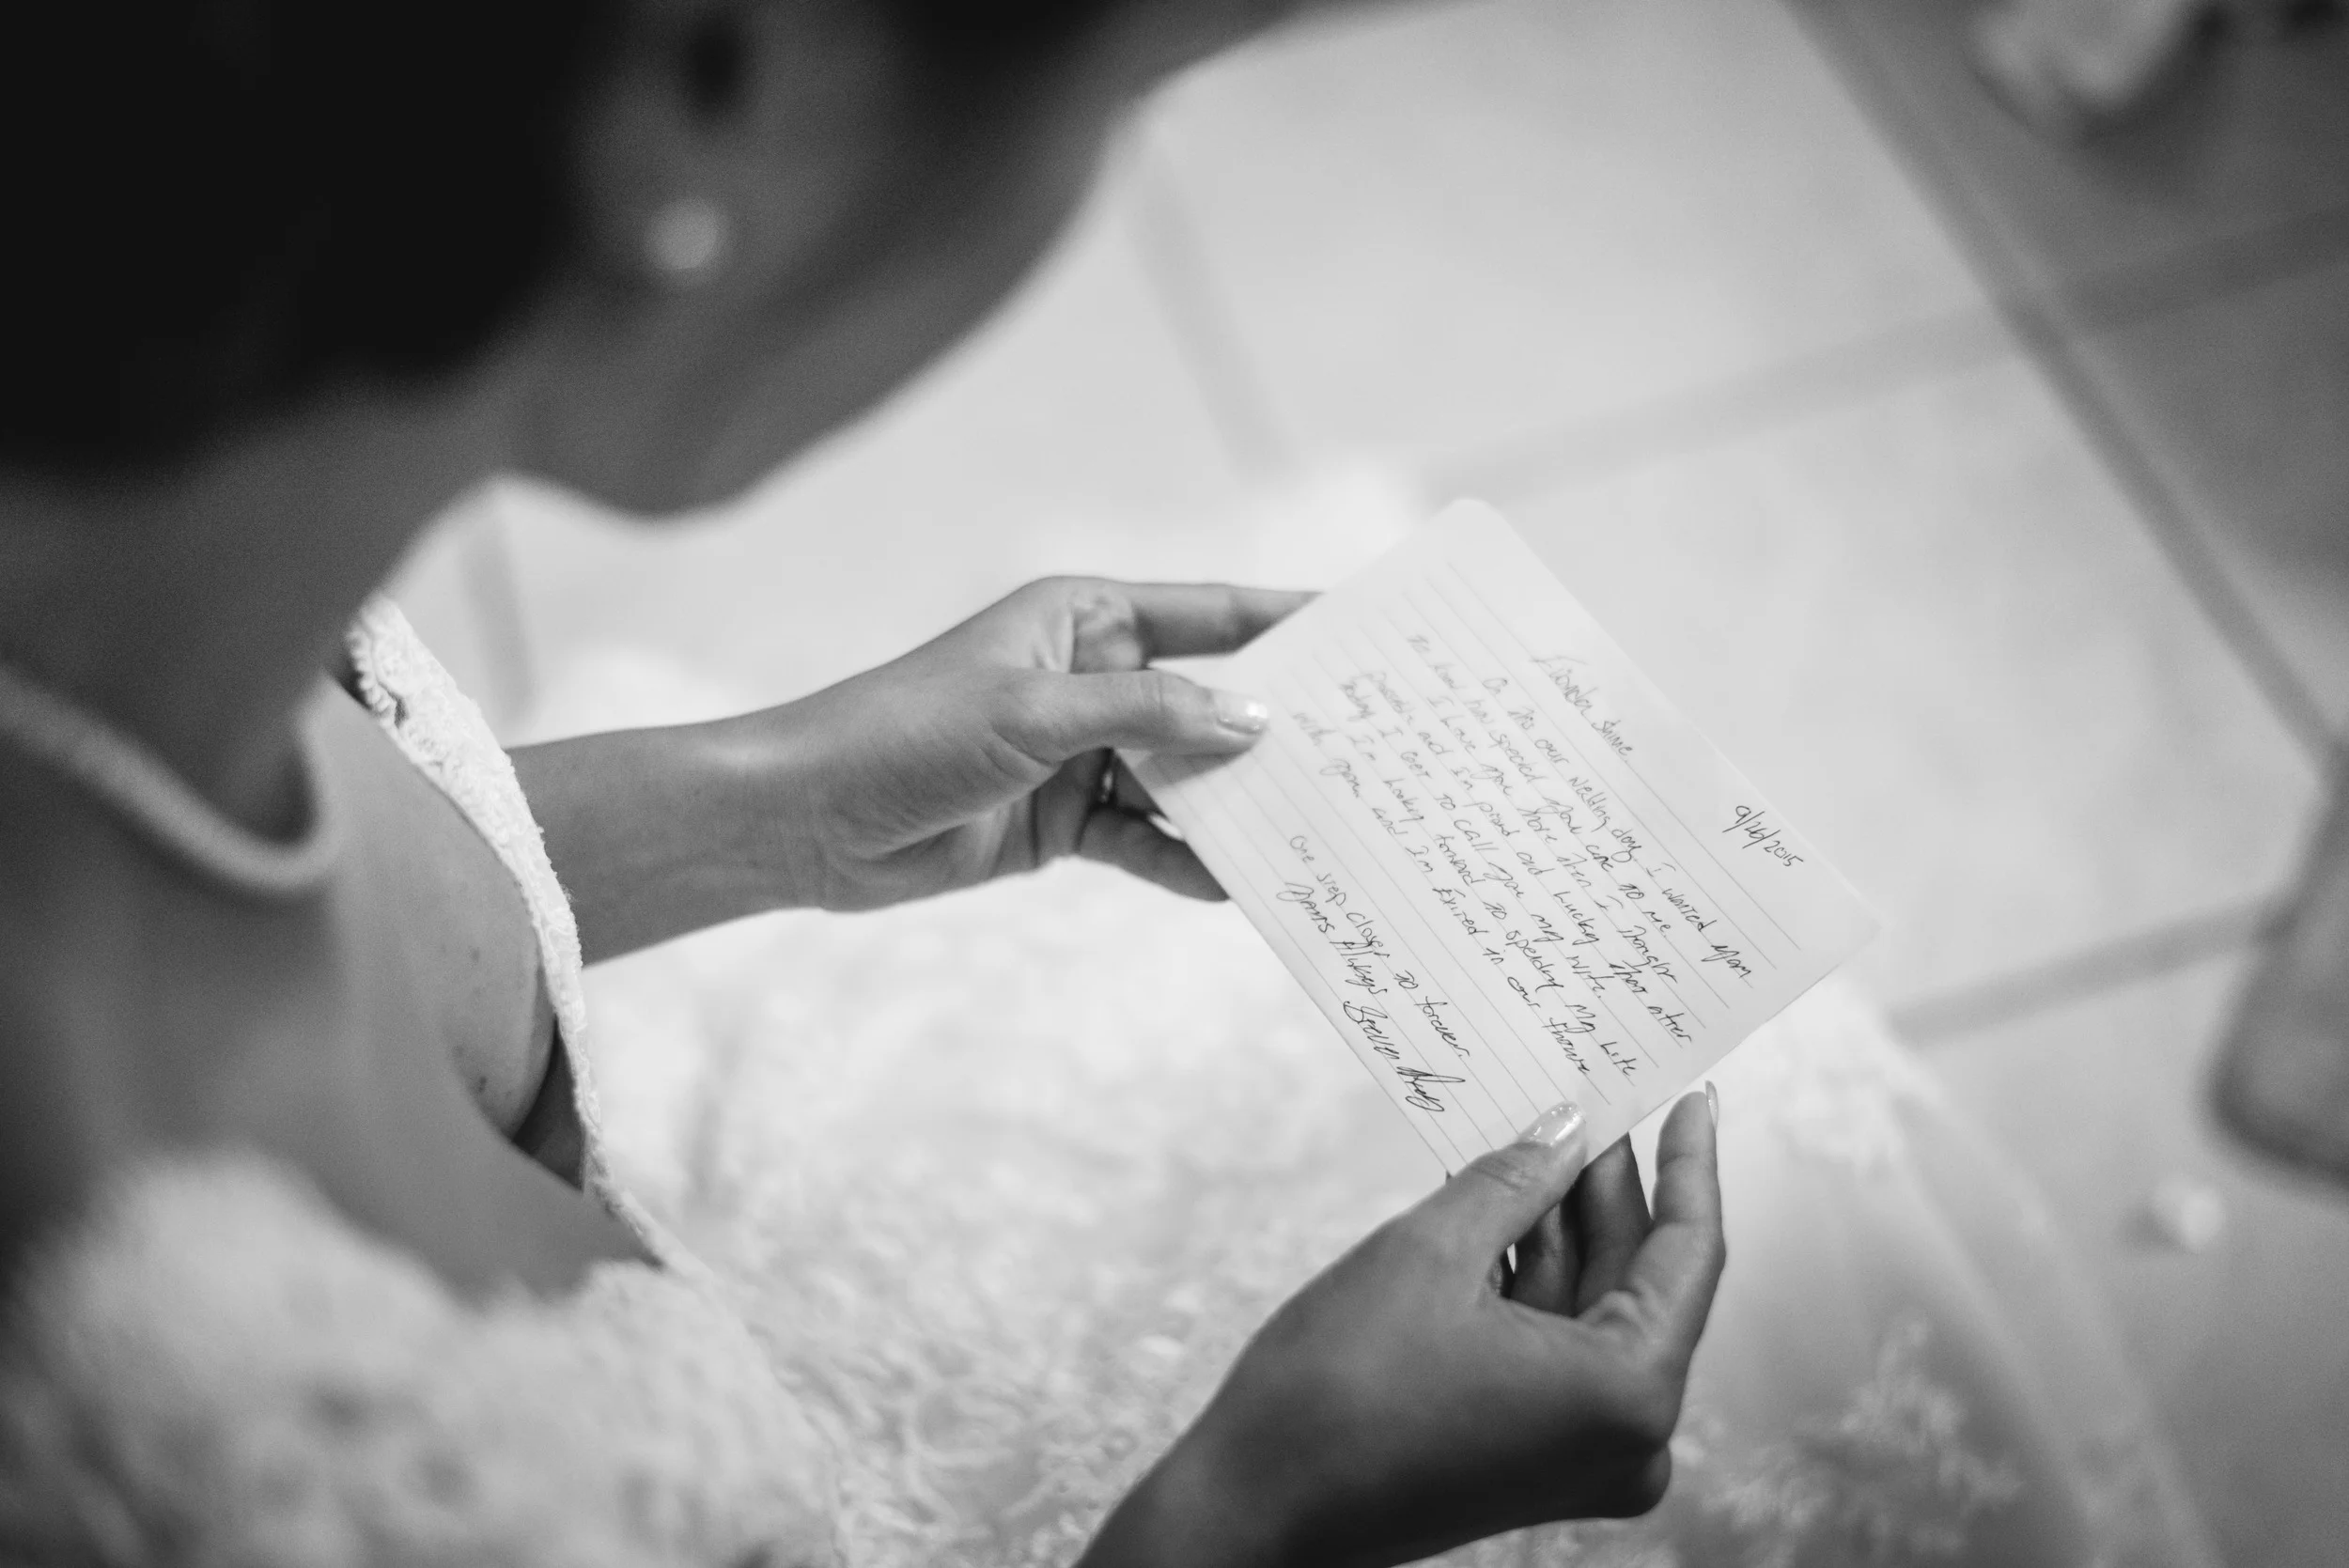 9/26/2015
On this our wedding day, I wanted you
to know how special you are to me.
I love you more then I thought
possible and I'm proud and lucky that after
today I get to call you my wife.
I'm looking forward to spending my life
with you and I'm excited in our future
one step closer to forever.
Yours Always